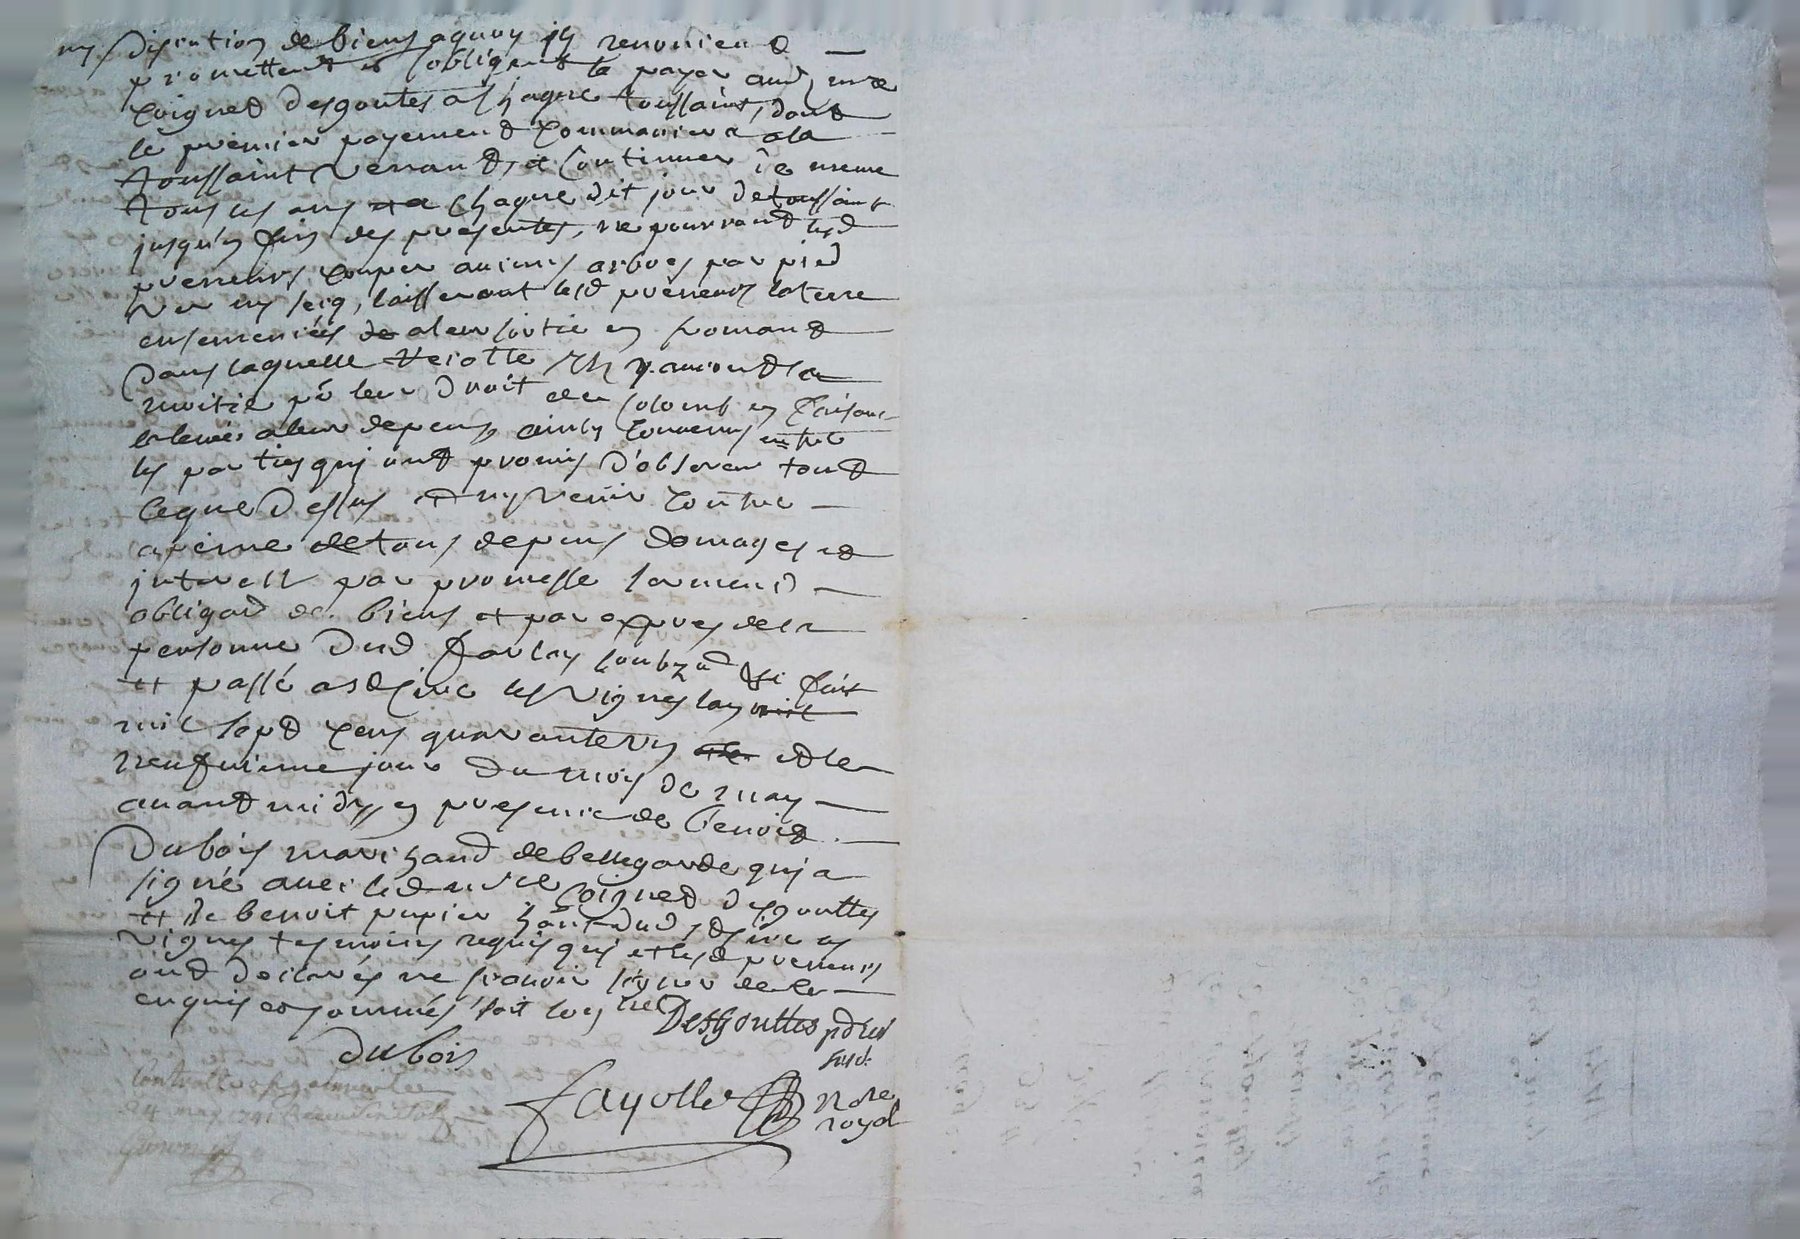 ny discution de biens aquoy ils renoncend
promettent et s'obligent de payer aud. mre
Coigned desgoutes a chaque toussaint, dont
le premier payement commancera a la
toussaint venand, et continuer de meme
tous les ans et a chaque dit jour de toussaint
jusqu'a fin des presentes, ne pourrand lesd
preneurs couper aucuns arbres par pied
ver ny secq, laisseront lesd preneurs la terre
ensemencées de a leur sortie en fromand
dans laquelle recolte ils y auront la
moitié pr leur droit de colons en faisans
la levée a leur depens, ainsy convenus entre
les parties qui ont promis d'observer tout
ceque dessus et ny venir contre
a peine de tous depens domages et
interest par promesse sermend
obligaõn de biens et par expres de la
personne dud
et passé a st Cire les vignes lan mil
mil sept cens quarante un et le
neufvieme jour du mois de may
avant midy, en presence de benoid
Dubois marchand de bellegarde qui a
signé avec led mre Coigned desgouttes
et de benoit papier hant dud st Cire les
vignes tesmoins requis qui et lesd preneurs
ond declarés ne scavoir signer de ce
enquis et sommés soit
Desgouttes
dubois
fayolle
nore
royal
Controllé
24 may 1741